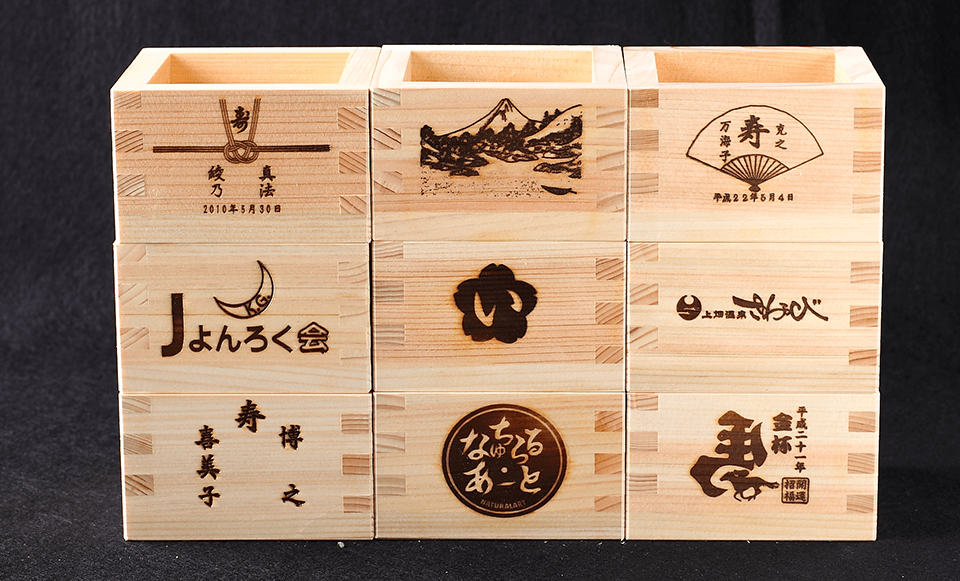 寿
真法
綾乃
2010年5月30日
克之
寿
万海子
平成22年5月4日
K.G.
Jよんろく会
い
上畑温泉
寿
博之
喜美子
なちゅらる
あーと
NATURALART
平成二十一年
金杯
開運
招福